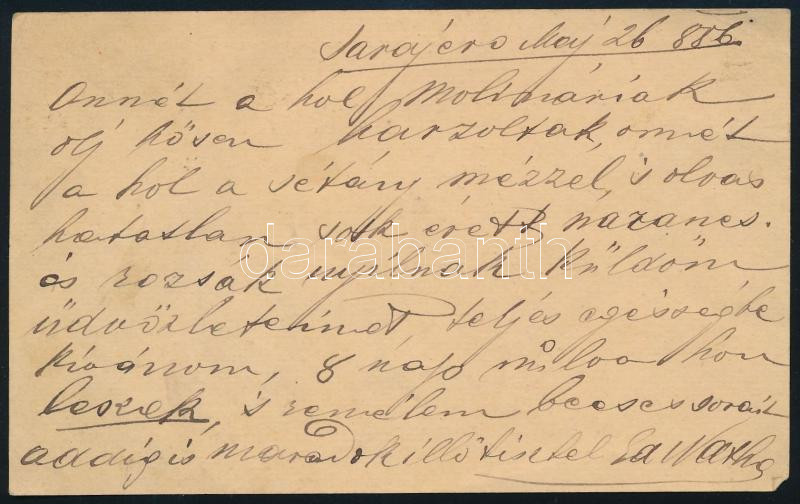 Sarajévo Maj 26 886
Onnét a hol Molináriak
olj hősen harzoltak, onnét
a hol a sétány mézzel, is olvas
hatatlan sok érett narancs.
és rozsák nyilnak küldöm
üdvözleteimet teljés egésségbe
kivánom, 8 nap mulva hon
lexek, is remélem becses sorait
addig is maradok illő tisztel Ed
darabanth